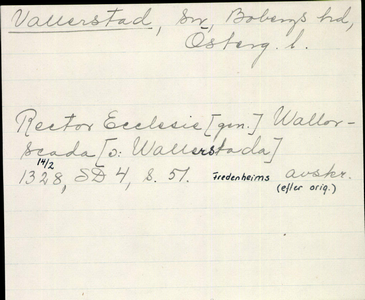 Vallerstad, sn, Bobergs hd,
Österg. l.
Rector Ecclesie [gen.] Wallor-
scada [ɔ: Wallerstada]
14/2
1328, SD 4, s. 51. Fredenheims avskr.
(efter orig.)